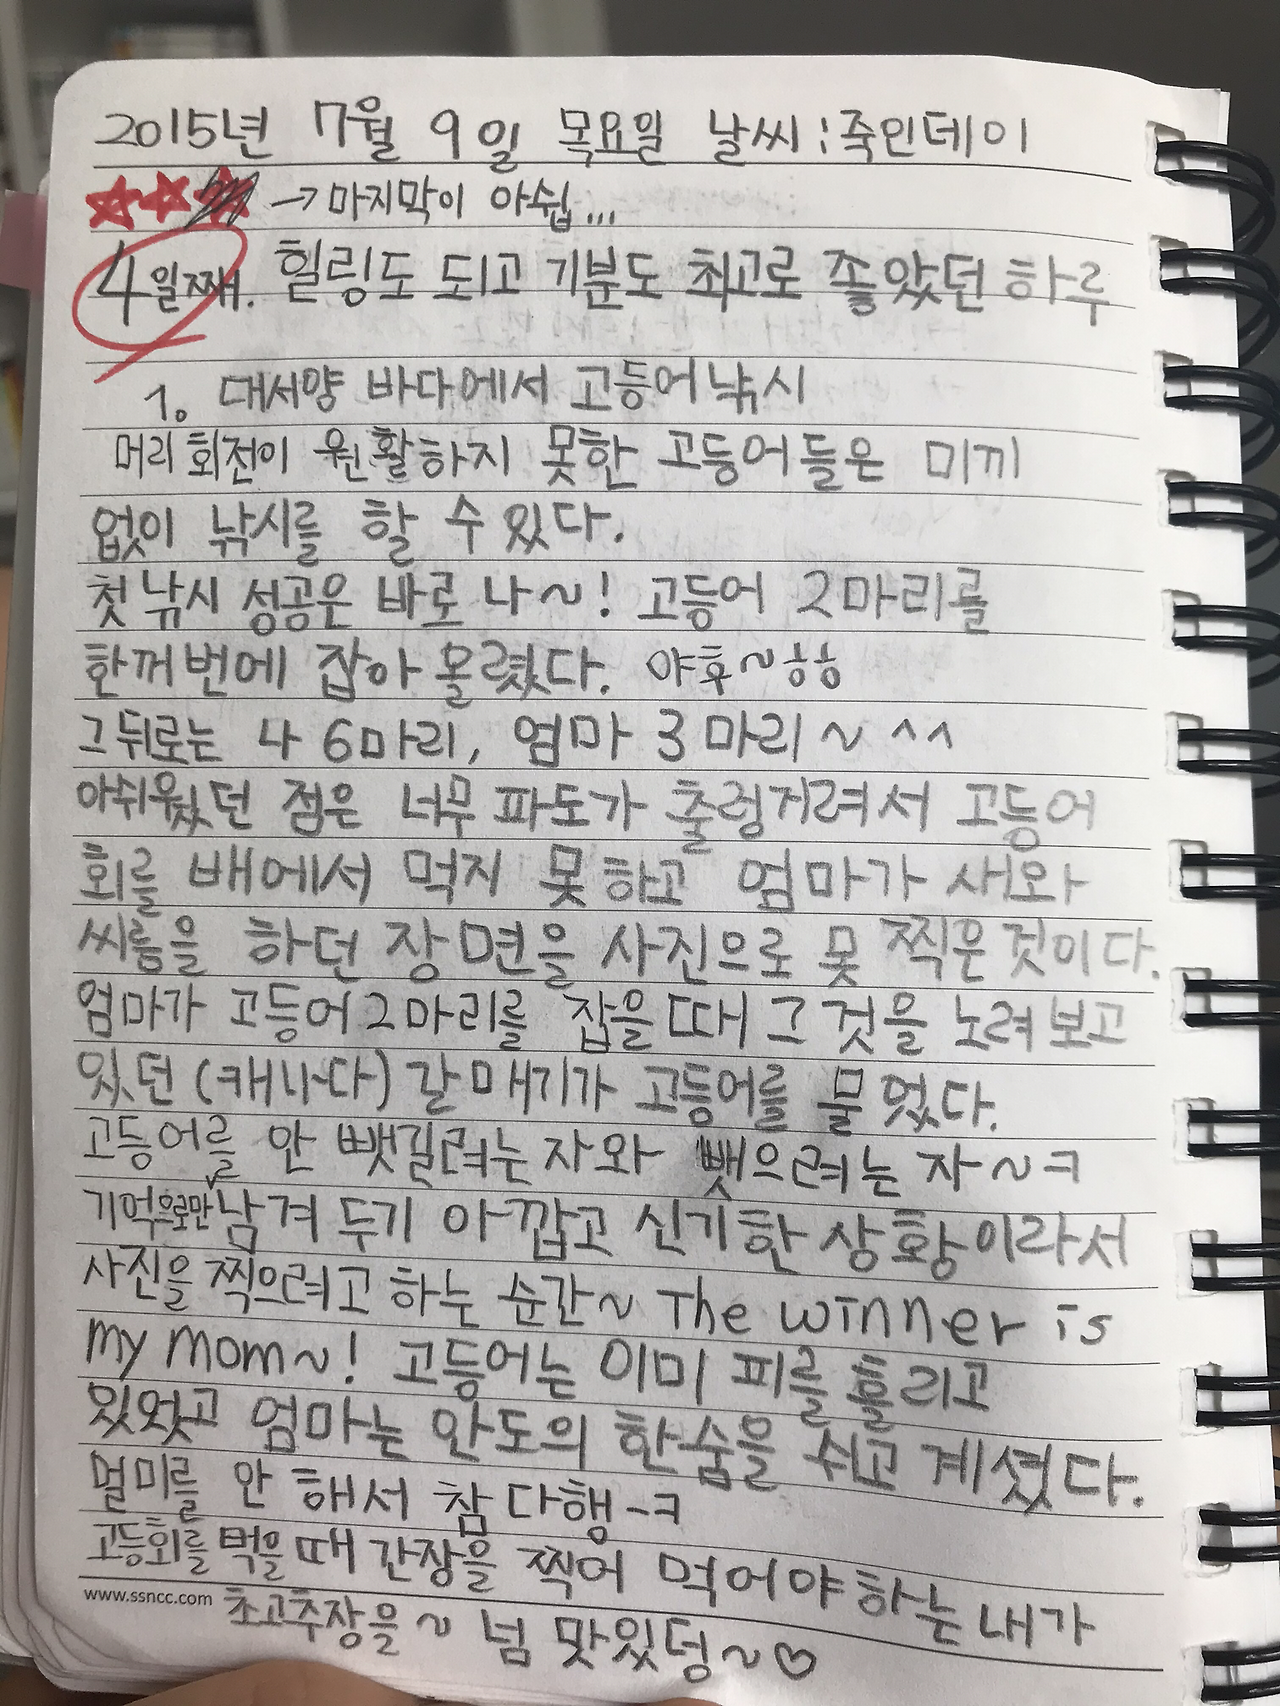 2015년 7월 9일 목요일 날씨:죽인데이
→마지막이 아쉽...
4일째. 힐링도 되고 기분도 최고로 좋았던 하루
1. 대서양 바다에서 고등어낚시
머리 회전이 원활하지 못한 고등어들은 미끼
없이 낚시를 할 수 있다.
첫 낚시 성공은 바로 나~! 고등어 2마리를
한꺼번에 잡아 올렸다. 야후~ㅎㅎ
그 뒤로는 나 6마리, 엄마 3마리~ ^^
아쉬웠던 점은 너무 파도가 출렁거려서 고등어
회를 배에서 먹지 못하고 엄마가 새와
씨름을 하던 장면을 사진으로 못 찍은 것이다.
엄마가 고등어 2마리를 잡을 때 그것을 노려보고
있던 (캐나다) 갈매기가 고등어를 물었다.
고등어를 안 뺏길려는 자와 뺏으려는 자~ㅋ
기억으로만 남겨 두기 아깝고 신기한 상황이라서
사진을 찍으려고 하는 순간~ The winner is
my mom~! 고등어는 이미 피를 흘리고
있었고 엄마는 안도의 한숨을 쉬고 계셨다.
멀미를 안 해서 참 다행-ㅋ
고등회를 먹을 때 간장을 찍어 먹어야 하는 내가
www.ssncc.com
초고추장을~ 넘 맛있덩~♡